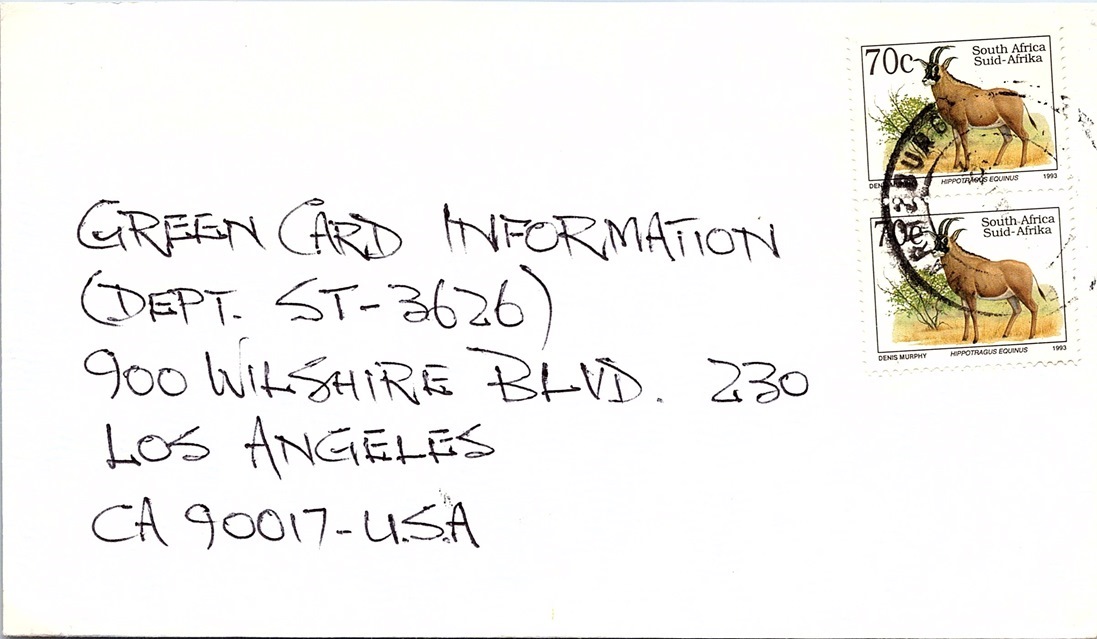 70c South Africa
Suid-Afrika
HIPPOTRAGUS EQUINUS 1993
70c South Africa
Suid-Afrika
DENIS MURPHY HIPPOTRAGUS EQUINUS 1993
GREEN CARD INFORMATION
(DEPT. ST-3626)
900 WILSHIRE BLVD. 230
LOS ANGELES
CA 90017-U.S.A